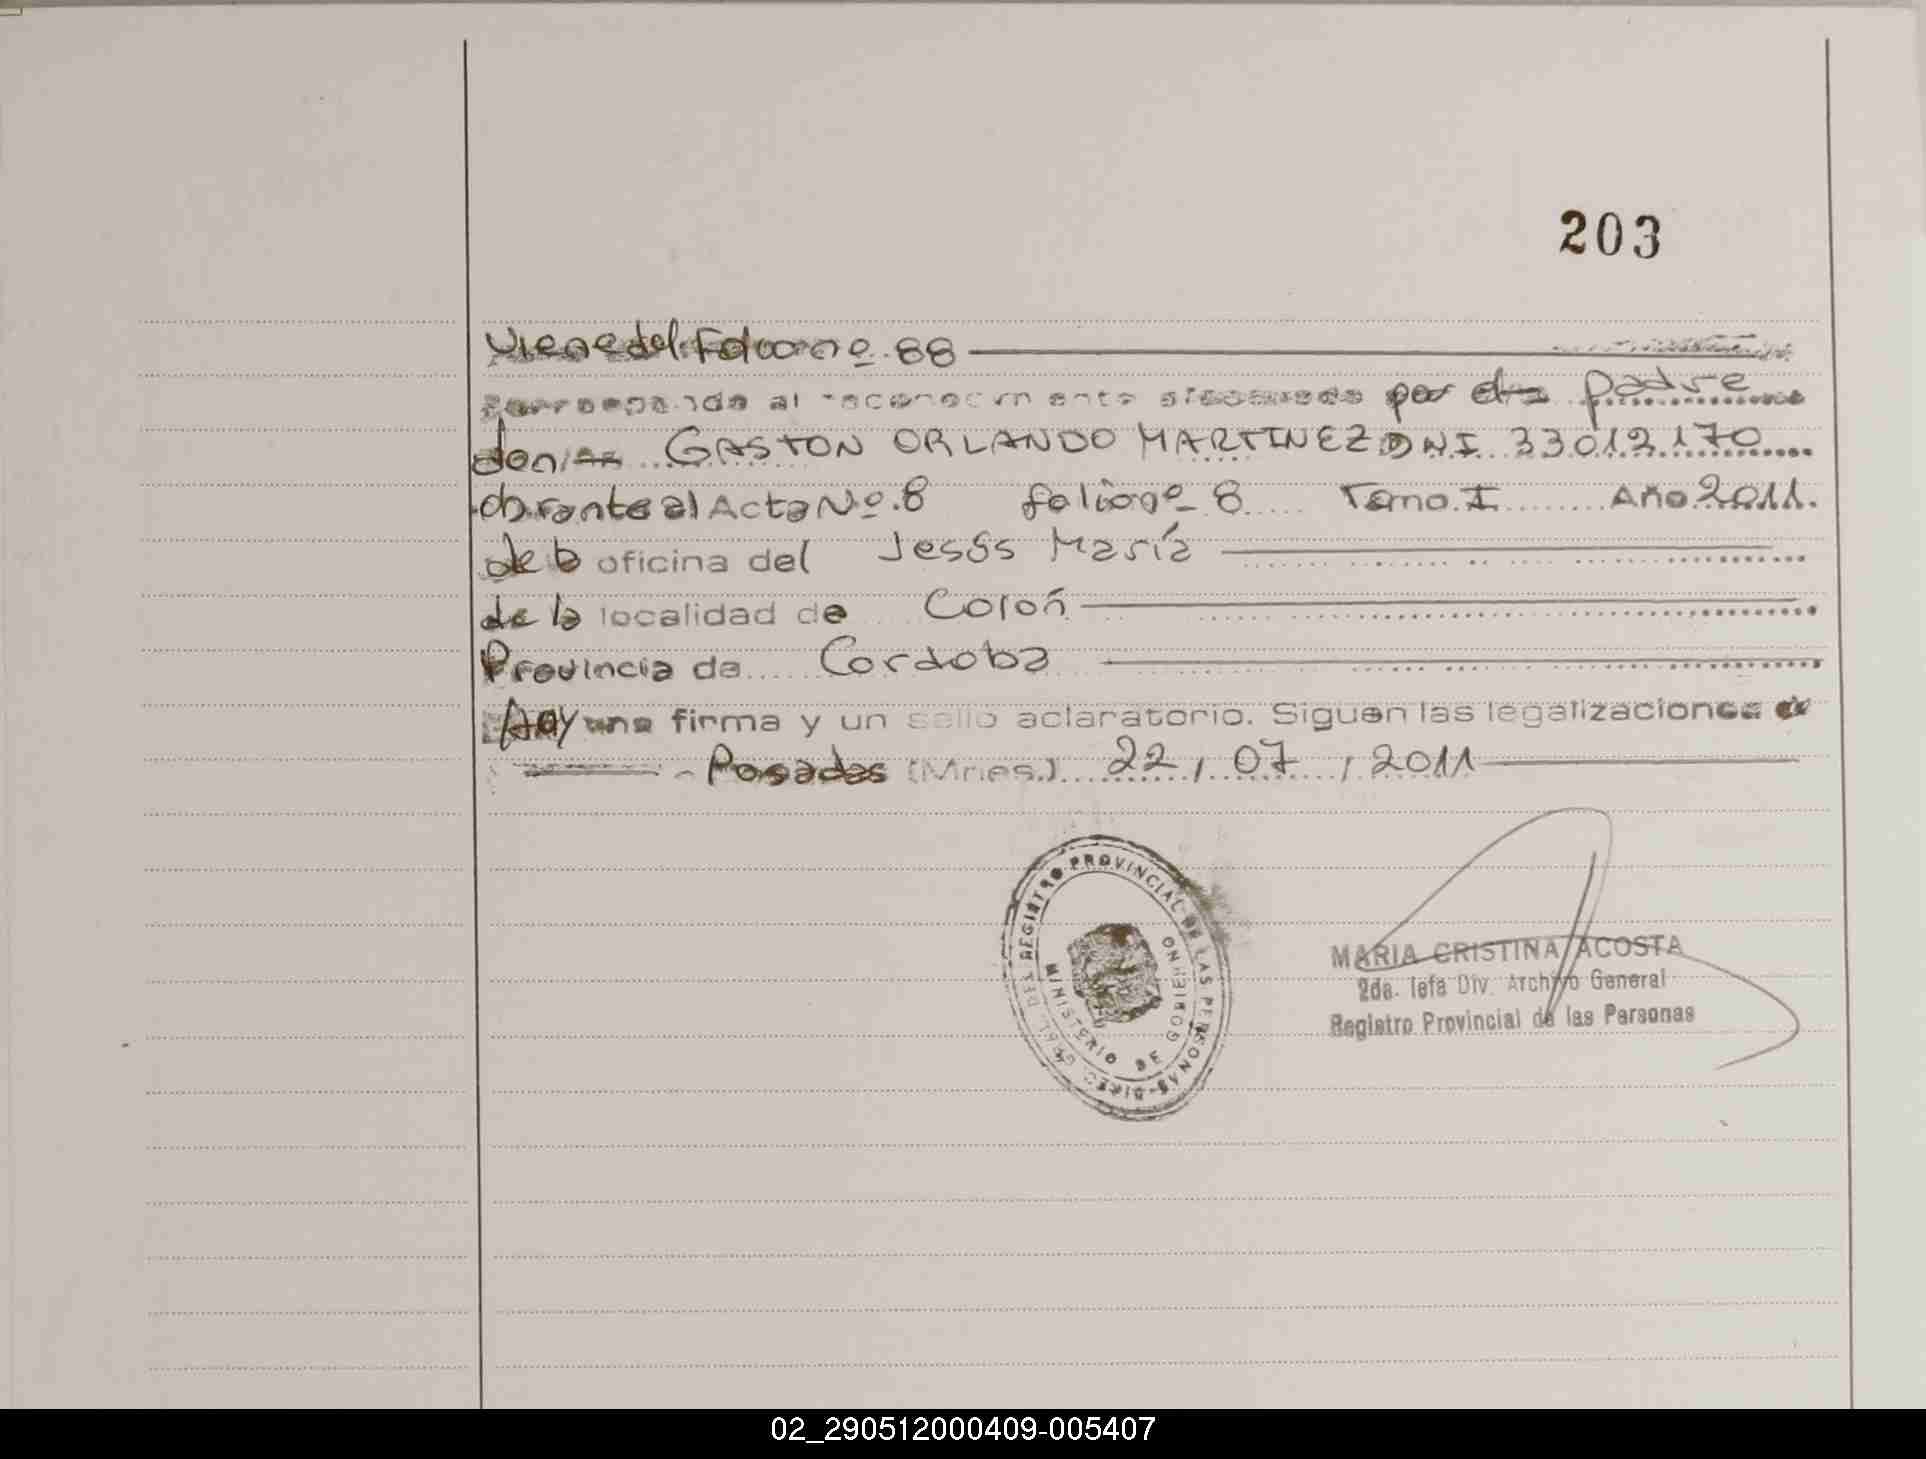 203
Viene del Folio nº 88
Corresponde al reconocimiento efectuado por el padre
don GASTON ORLANDO MARTINEZ DNI 33.012.170
obrante al Acta Nº 8 folio nº 8 Tomo I Año 2011.
de la oficina del Jesús María
de la localidad de Colón
Provincia de Cordoba
Hay una firma y un sello aclaratorio. Siguen las legalizaciones de
Posadas (Mnes.) 22, 07, 2011
REGISTRO PROVINCIAL DE LAS PERSONAS - DIREC. GRAL. DEL
MINISTERIO DE GOBIERNO
MARIA CRISTINA ACOSTA
2da. Jefa Div. Archivo General
Registro Provincial de las Personas
02_290512000409-005407